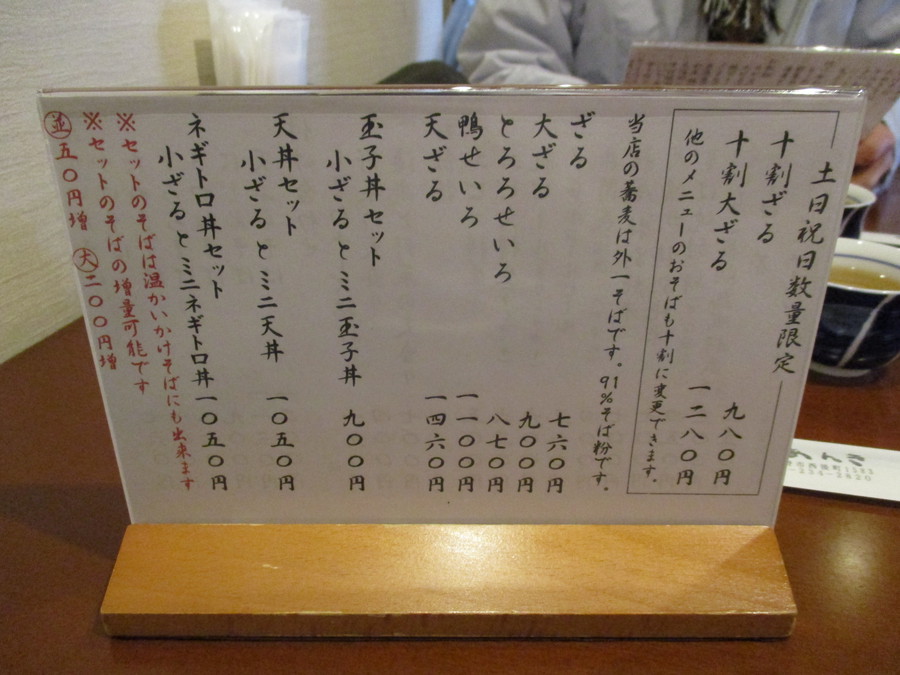 土日祝日数量限定
十割ざる 九八〇円
十割大ざる 一二八〇円
他のメニューのおそばも十割に変更できます。
当店の蕎麦は外一そばです。91%そば粉です。
ざる 七六〇円
大ざる 九〇〇円
とろろせいろ 八七〇円
鴨せいろ 一一〇〇円
天ざる 一四六〇円
玉子丼セット
小ざると ミニ玉子丼 九〇〇円
天丼セット
小ざると ミニ天丼 一〇五〇円
ネギトロ丼セット
小ざると ミニネギトロ丼 一〇五〇円
※セットのそばは温かいかけそばにも出来ます
※セットのそばの増量可能です
並五〇円増 大二〇〇円増